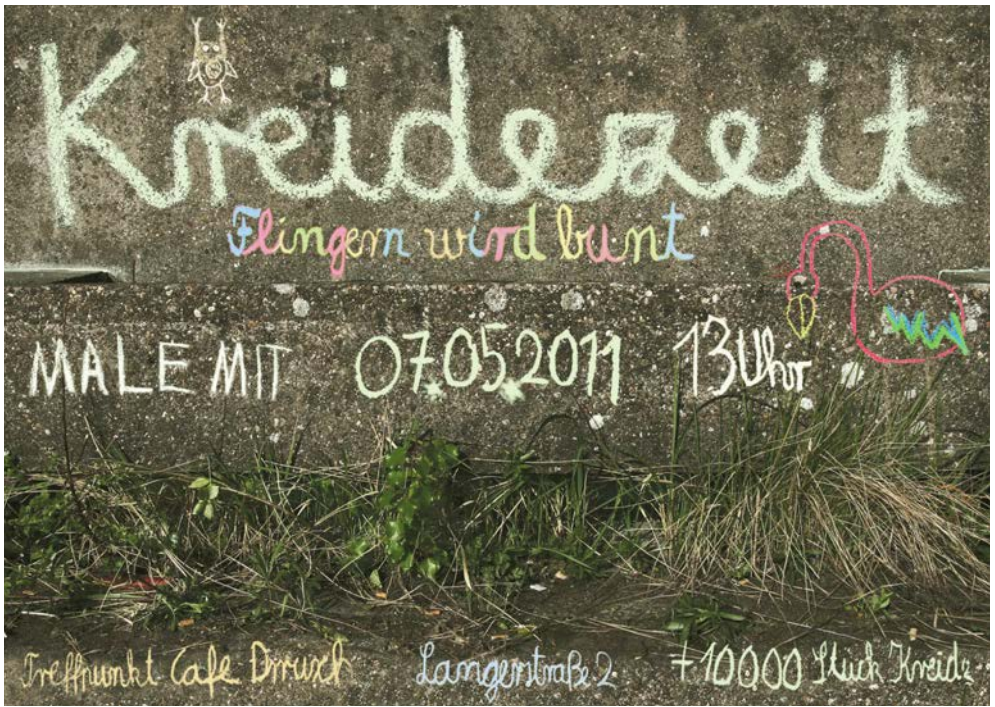 Kreidezeit
Flingern wird bunt
MALE MIT 07.05.2011 13 Uhr
Treffpunkt Cafe Drrusch Langerstraße 2 +10000 Stück Kreide